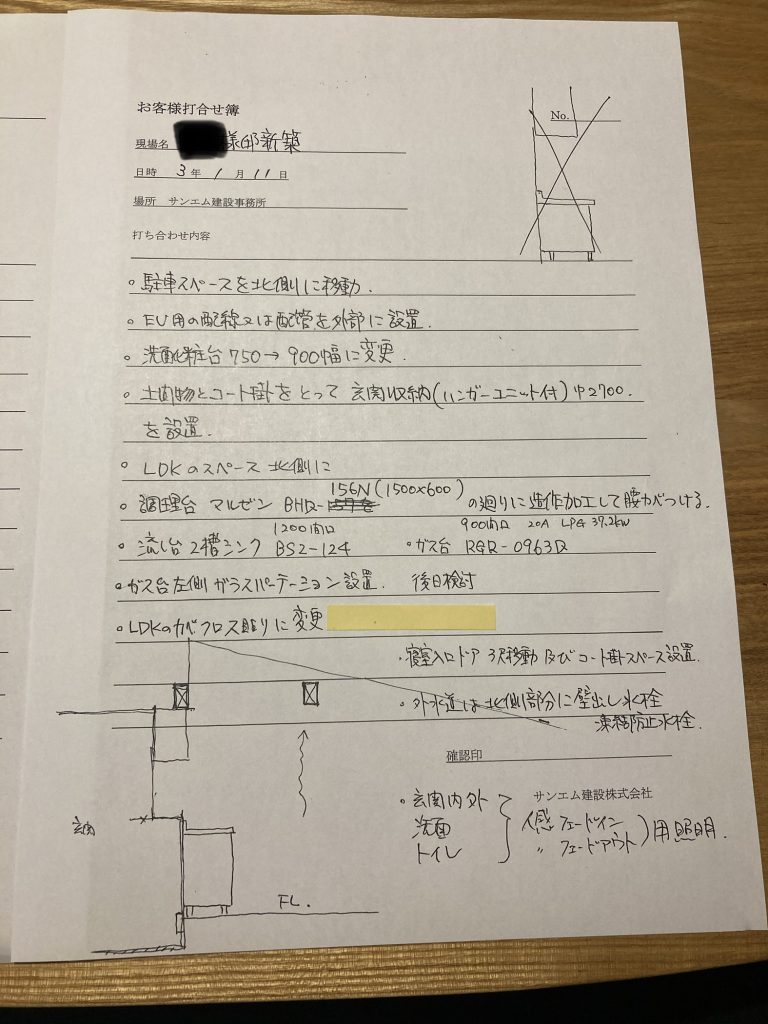 お客様打合せ簿
No.
現場名 様邸新築
日時 3年 1月 11日
場所 サンエム建設事務所
打ち合わせ内容
・駐車スペースを北側に移動.
・EV用の配線又は配管を外部に設置.
・洗面化粧台 750→900幅に変更.
・土間物とコート掛をとって 玄関収納(ハンガーユニット付)巾2700.
を設置.
・LDKのスペース 北側に
156N(1500×600)
・調理台 マルゼン BHD- の廻りに造作加工して腰カベつける.
1200間口 900間口 20A LPG 39.2kw
・流し台 2槽シンク BS2-124 ・ガス台 RGR-0963D
・ガス台左側 ガラスパーテーション設置. 後日検討
・LDKのカベクロス貼りに変更
・寝室入口ドア 3尺移動 及びコート掛スペース設置.
・外水道は北側部分に壁出し水栓
凍結防止水栓.
確認印
サンエム建設株式会社
・玄関内外
洗面
トイレ
人感 フェードイン
〃 フェードアウト
用照明.
玄関
FL.